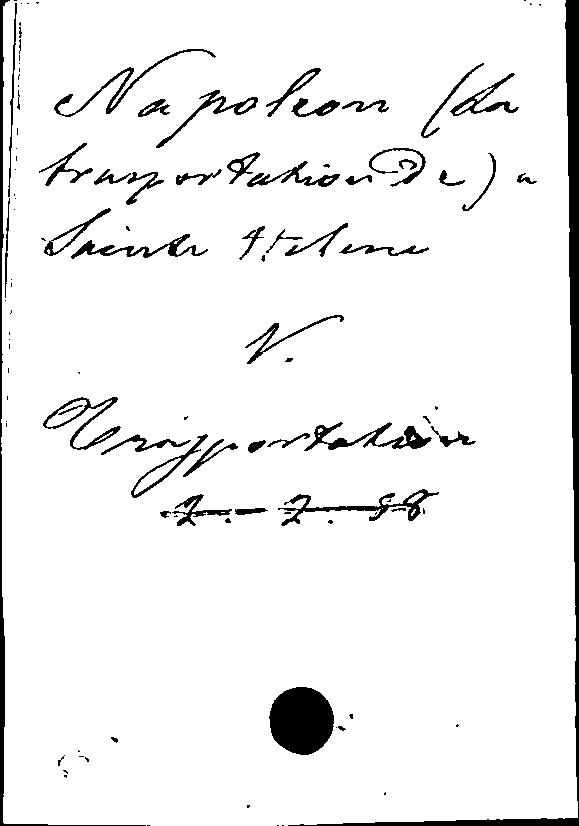 Napoleon (La
trasportation De) a
Sainte Helene
V.
Trasportation
2. - 2. 98